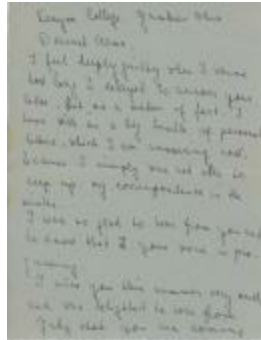 Kenyon College, Gambier Ohio
Dearest
I feel deeply guilty when I
how long I delayed to answer your
letter. But as a matter of fact, I
have still a big bundle of personal
letters, which I am answering now,
because I simply was not able to
keep up my correspondence in the
I was so glad to hear from you and
to know that your work is pro-
I miss you this summer very much
and was delighted to hear from
that you are coming